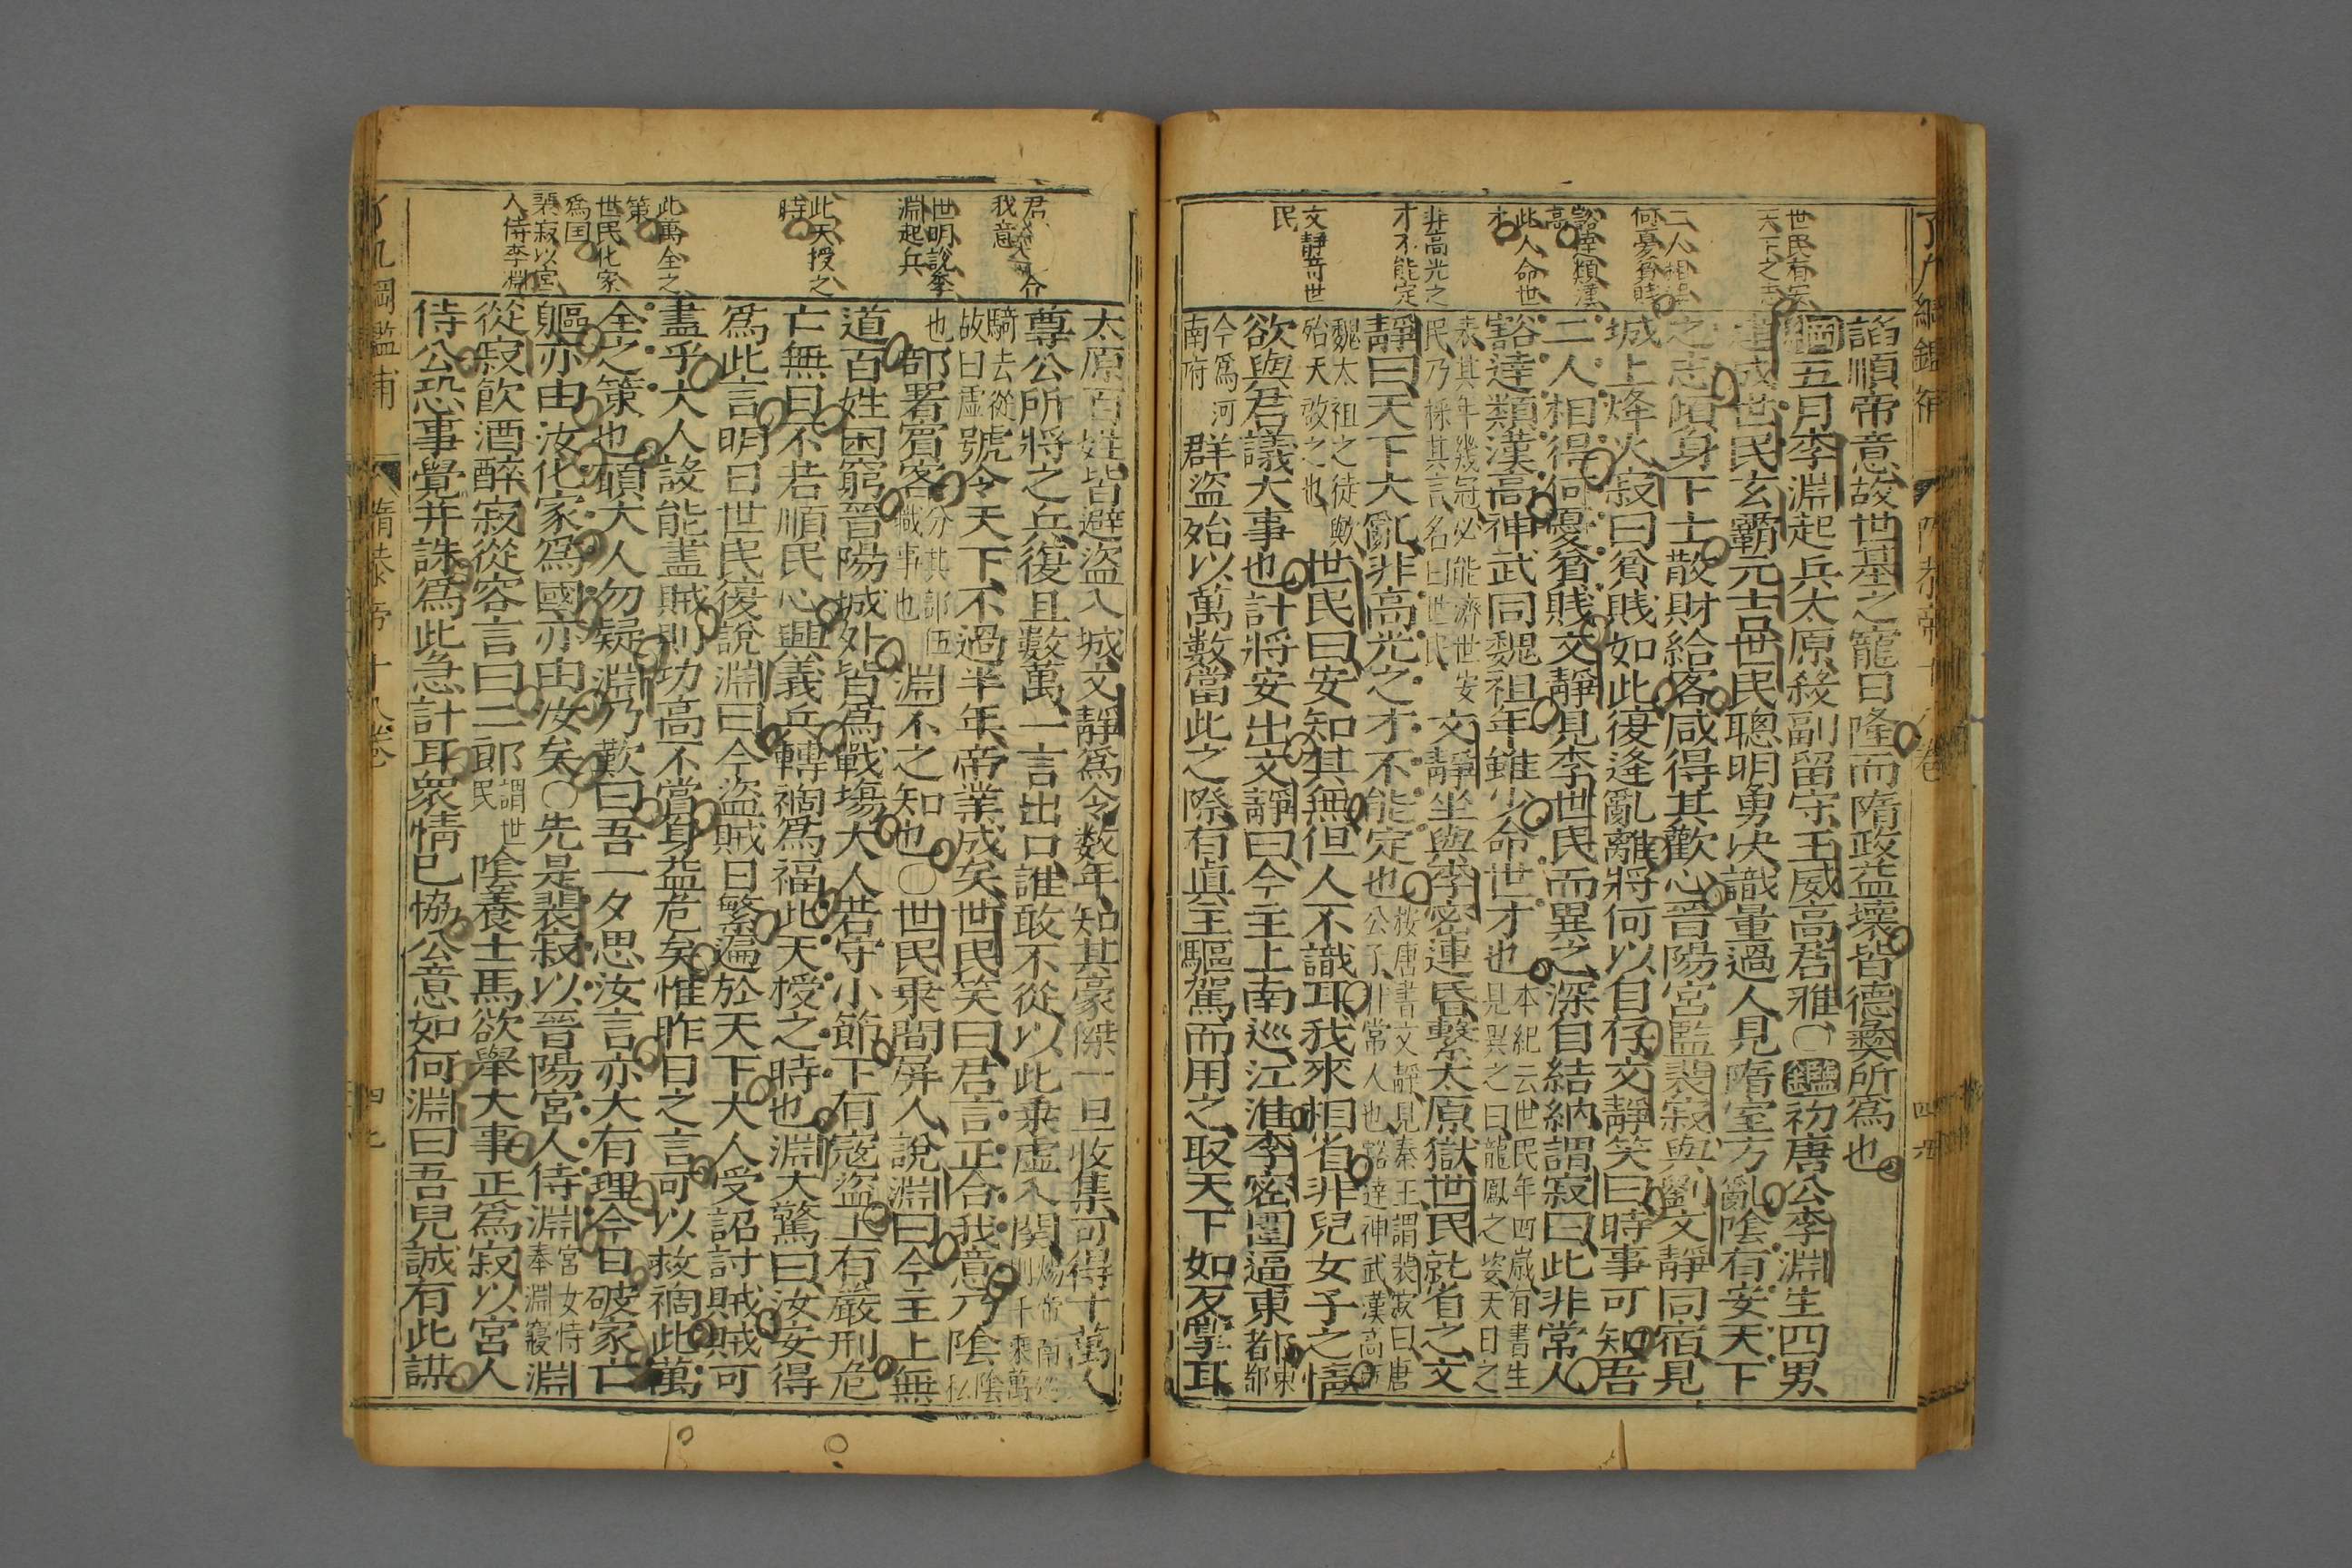 世民有安
天下之志
二人相得
何憂貧賤
豁達類漢
高
此人命世
才
非高光之
才不能定
文靜竒世
民
諂順帝意故世基之寵日隆而隋政益壊皆德彜所為也
綱五月李淵起兵太原殺副留守王威高君雅〇鑑初唐公李淵生四男
建成世民玄霸元吉世民聰明勇决識量過人見隋室方亂陰有安天下
之志傾身下士散財給客咸得其歡心晉陽宮監裴寂與劉文靜同宿見
城上烽火寂曰貧賎如此復逢亂離將何以自存文靜笑曰時事可知吾
二人相得何憂貧賎文靜見李世民而異之深自結納謂寂曰此非常人
豁達類漢高神武同魏祖年雖少命世才也本紀云世民年四歲有書生
見異之曰龍鳳之姿天日之
表其年幾冠必能濟世安
民乃採其言名曰世民
文靜坐與李密連昏繫太原獄世民就省之文
靜曰天下大亂非高光之才不能定也按唐書文靜見秦王謂裴寂曰唐
公子非常人也豁達神武漢高
魏太祖之徒歟
殆天啟之也
世民曰安知其無但人不識耳我來相省非兒女子之情
欲與君議大事也計將安出文靜曰今主上南巡江淮李密圍逼東都東
都
今為河
南府
群盜始以萬數當此之際有眞主驅駕而用之取天下如反掌耳
君言正合
我意
世民說李
淵起兵
此天授之
時
此萬全之
第
世民化家
爲国
裴寂以宫
人侍李淵
太原百姓皆避盗入城文靜爲令数年知其豪傑一旦收集可得十萬人
尊公所將之兵復且數萬一言出口誰敢不從以此乗虛入関煬帝南
則千乘萬
騎去從
故曰虛
號令天下不過半年帝業成矣世民笑曰君言正合我意乃陰陰
私
也
部署賓客分其部伍
職事也
淵不之知也〇世民乗間屏人說淵曰今主上無
道百姓困窮晉陽城外皆爲戰塲大人若守小節下有寇盜上有嚴刑危
亡無日不若順民心興義兵轉禍爲福此天授之時也淵大驚曰汝安得
爲此言明日世民復說淵曰今盗賊日繁遍於天下大人受詔討賊賊可
盡乎大人設能盡賊則功高不賞身益危矣惟昨日之言可以救禍此萬
全之策也頋大人勿疑淵乃歎曰吾一夕思汝言亦大有理今日破家亡
軀亦由汝化家爲國亦由汝矣〇先是裴寂以晉陽宮人侍淵宮女侍
奉淵寢
淵
從寂飲酒醉寂從容言曰二郎謂世
民
陰養士馬欲舉大事正爲寂以宮人
侍公恐事覺并誅爲此急計耳衆情已恊公意如何淵曰吾兒誠有此謀
了凡綱鑑補
隋恭帝十八卷
四七